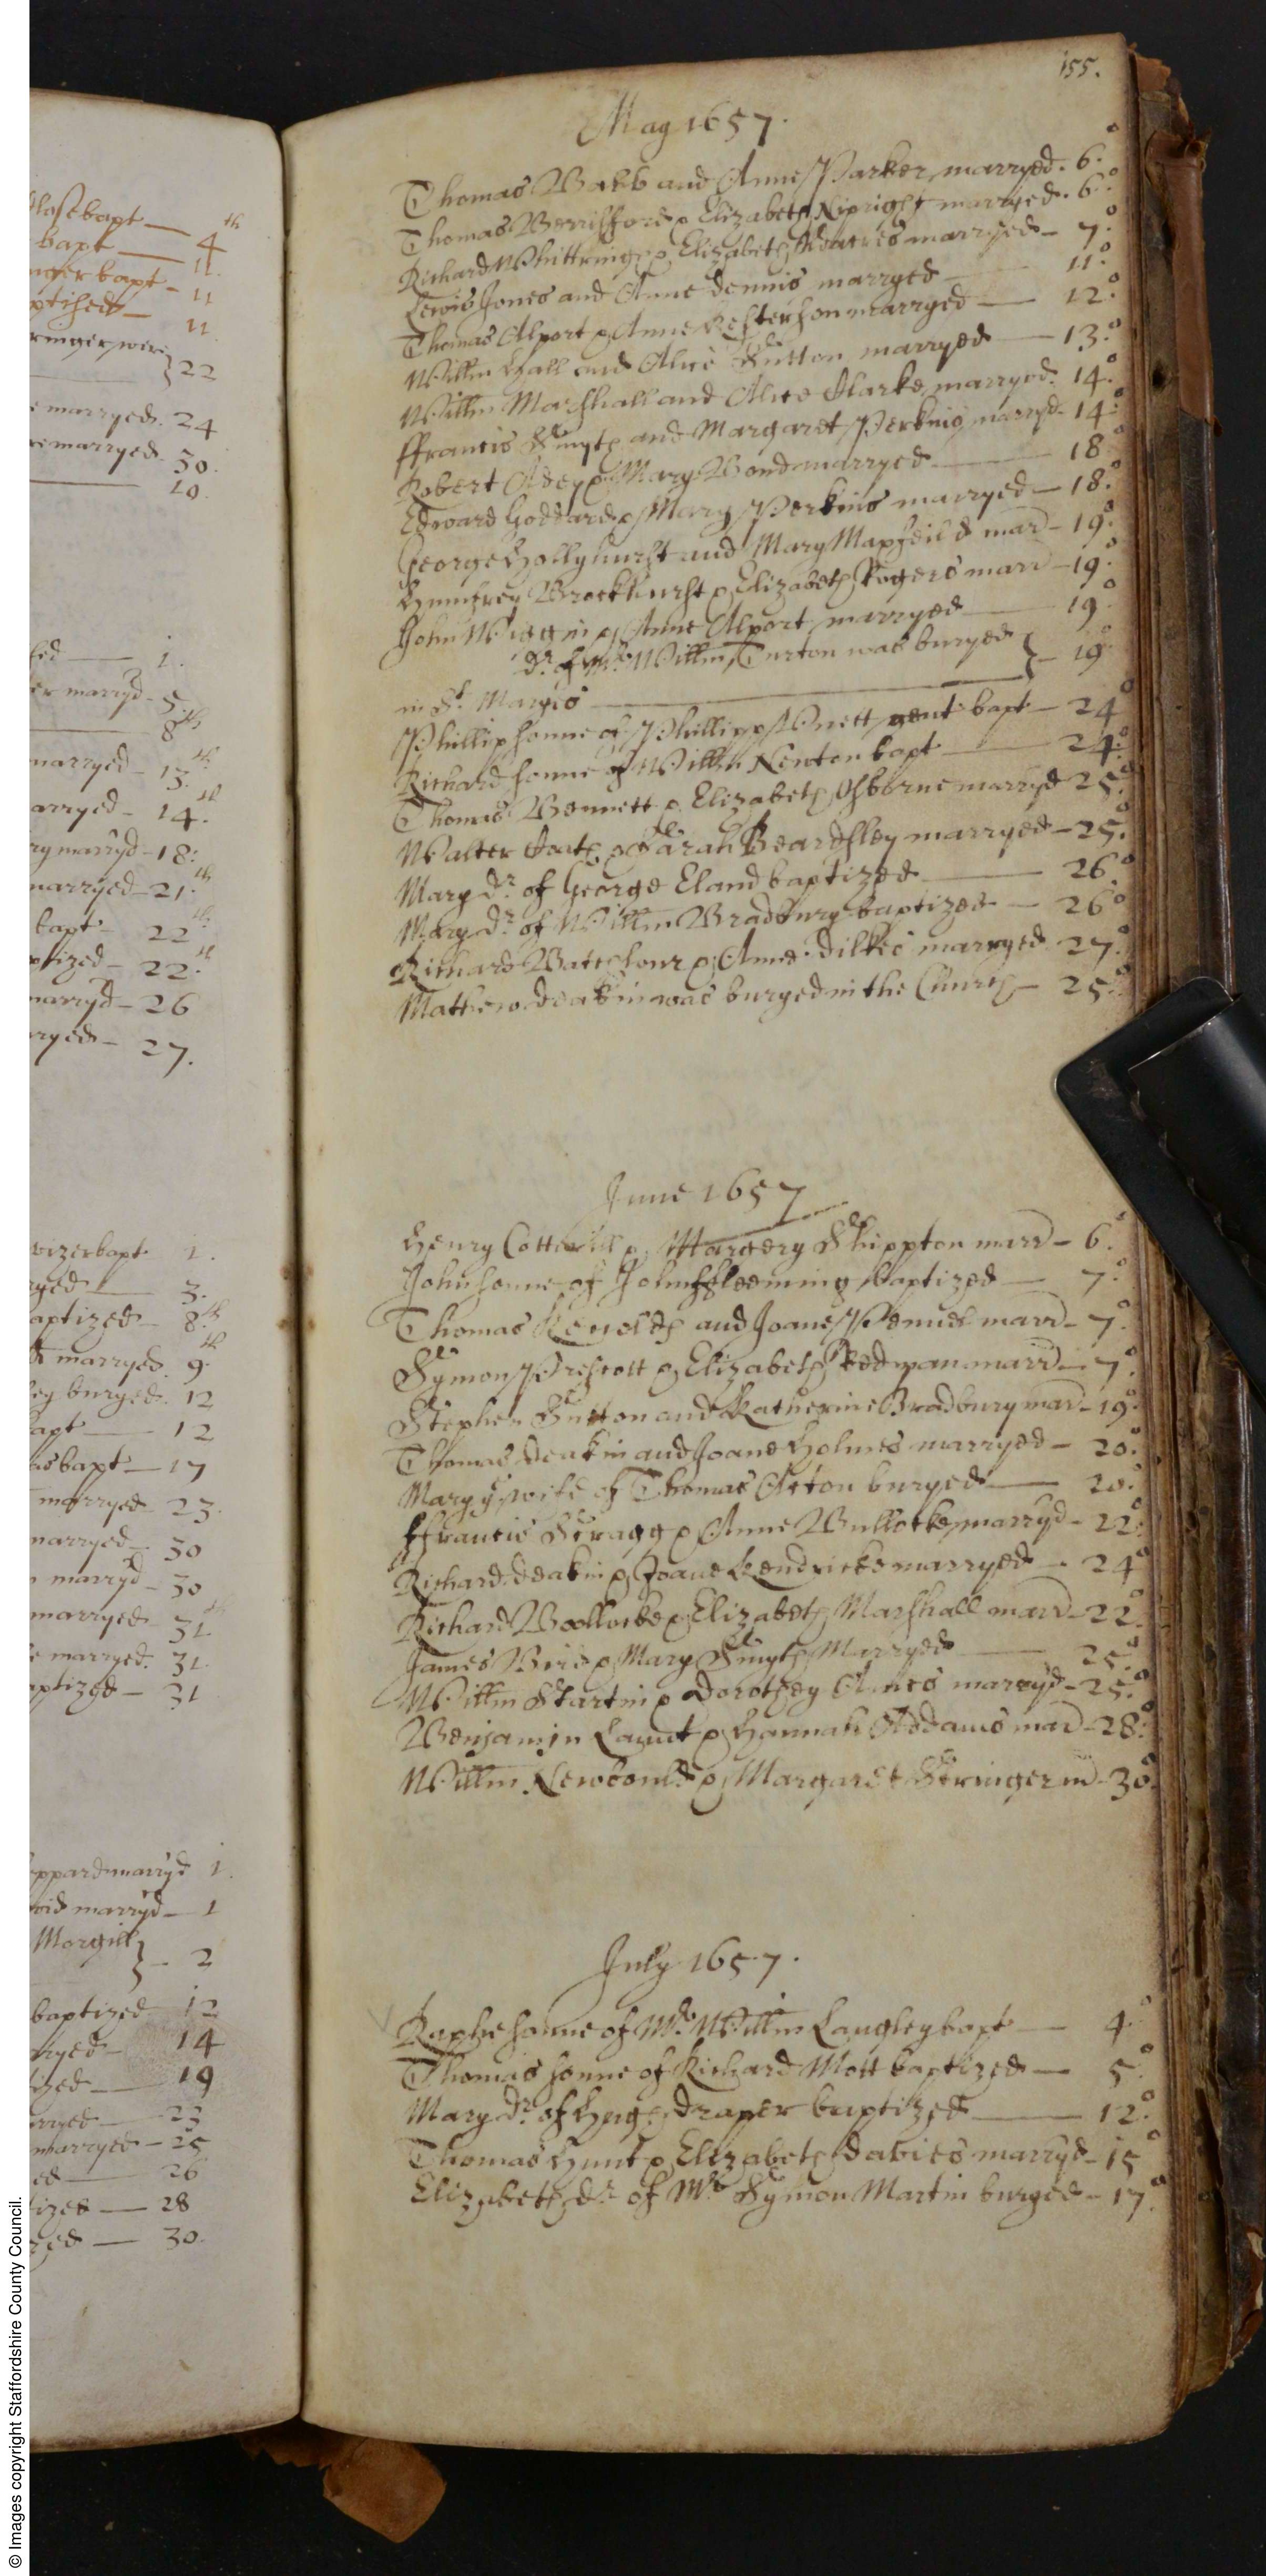 155.
May 1657.
Thomas Webb and Anne Parker marryed. 6.°
Thomas Berrisford & Elizabeth marryed. 6.°
Richard & Elizabeth marryed - 7.°
Lewis Jones and Anne Dennis marryed — 11.°
Thomas Alport & Anne marryed — 12.°
Willm Hall and Alice Sutton marryed — 13.°
Willm Marshall and Alice Clarke marryed. 14.°
ffrancis Smyth and Margaret Perkins marryd - 14.°
Robert Adey & Mary Bond marryed — 18
Edward Goddard & Mary Perkins marryed — 18.°
George Hollyhurst and Mary mard - 19.°
Humfrey Brockhurst & Elizabeth Rogers mard - 19.°
John Wiggin & Anne Alport marryed — 19°
Dr. of Mr. Willm Turton was buryed } — 19°
in St. Maryes —
Phillip sonne of Phillipp gent bapt — 24°
Richard sonne of Willm Newton bapt — 24.°
Thomas Bennett & Elizabeth Osborne marryd 25.°
Walter & Sarah Beardsley marryed — 25.°
Mary Dr. of George Eland baptized — 26.°
Mary Dr. of Willm Bradbury baptized — 26°
Richard & Anne Dilkes marryed. 27.°
Mathew Deakin was buryed in the Church — 25.°
June 1657
Henry & Margery Shippton mard - 6.°
John sonne of John ffleeming baptized — 7.°
Thomas and Joane mard - 7.°
Symon Prescott & Elizabeth Redman mard - 7.°
Stephen Sutton and Katherine Bradbury mard - 19.°
Thomas Deakin and Joane Holmes marryed - 20.°
Mary ye wife of Thomas buryed — 20.°
ffrancis Stragg & Anne Bullocke marryd - 22.°
Richard Deakin & Joane Kendricke marryed - 24°
Richard Woollocke & Elizabeth Marshall mard - 22.°
James Bird & Mary Smyth Marryed — 25.°
Willm Startin & Dorothey Ames marryd - 25.°
Benjamin & Hannah Addams mard - 28.°
Willm Newbould & Margaret Stringer md - 30.°
July 1657.
Raphe sonne of Mr. Willm Langley bapt — 4.°
Thomas sonne of Richard Mott baptized — 5.°
Mary Dr. of Draper baptized — 12.°
Thomas Hunt & Elizabeth Davies marryd - 15°
Elizabeth Dr. of Mr. Symon Martin buryed - 17.°
bapt — 4th
bapt — 11.
bapt - 11
— 11
}22
marryed. 24
marryed. 30.
— 10.
— 1.
marryd - 5.
— 8th
marryed - 13.th
arryed - 14.th
marryd - 18:
marryed - 21.th
bapt - 22th
ptized - 22.th
marryd - 26
ryed - 27.
bapt 1.
ryed — 3.
aptized - 8.th
marryed. 9.th
buryed. 12
apt — 12
as bapt — 17
marryed 23.
marryed - 30
marryd - 30
marryed - 31
marryed. 31
aptized - 31
ppard marryd 1.
marryd - 1
Morgill } - 2
baptized - 12
ryed - 14
ized — 19
rryed — 23
marryed - 25
ed — 26
ized — 28
— 30.
© Images copyright Staffordshire County Council.